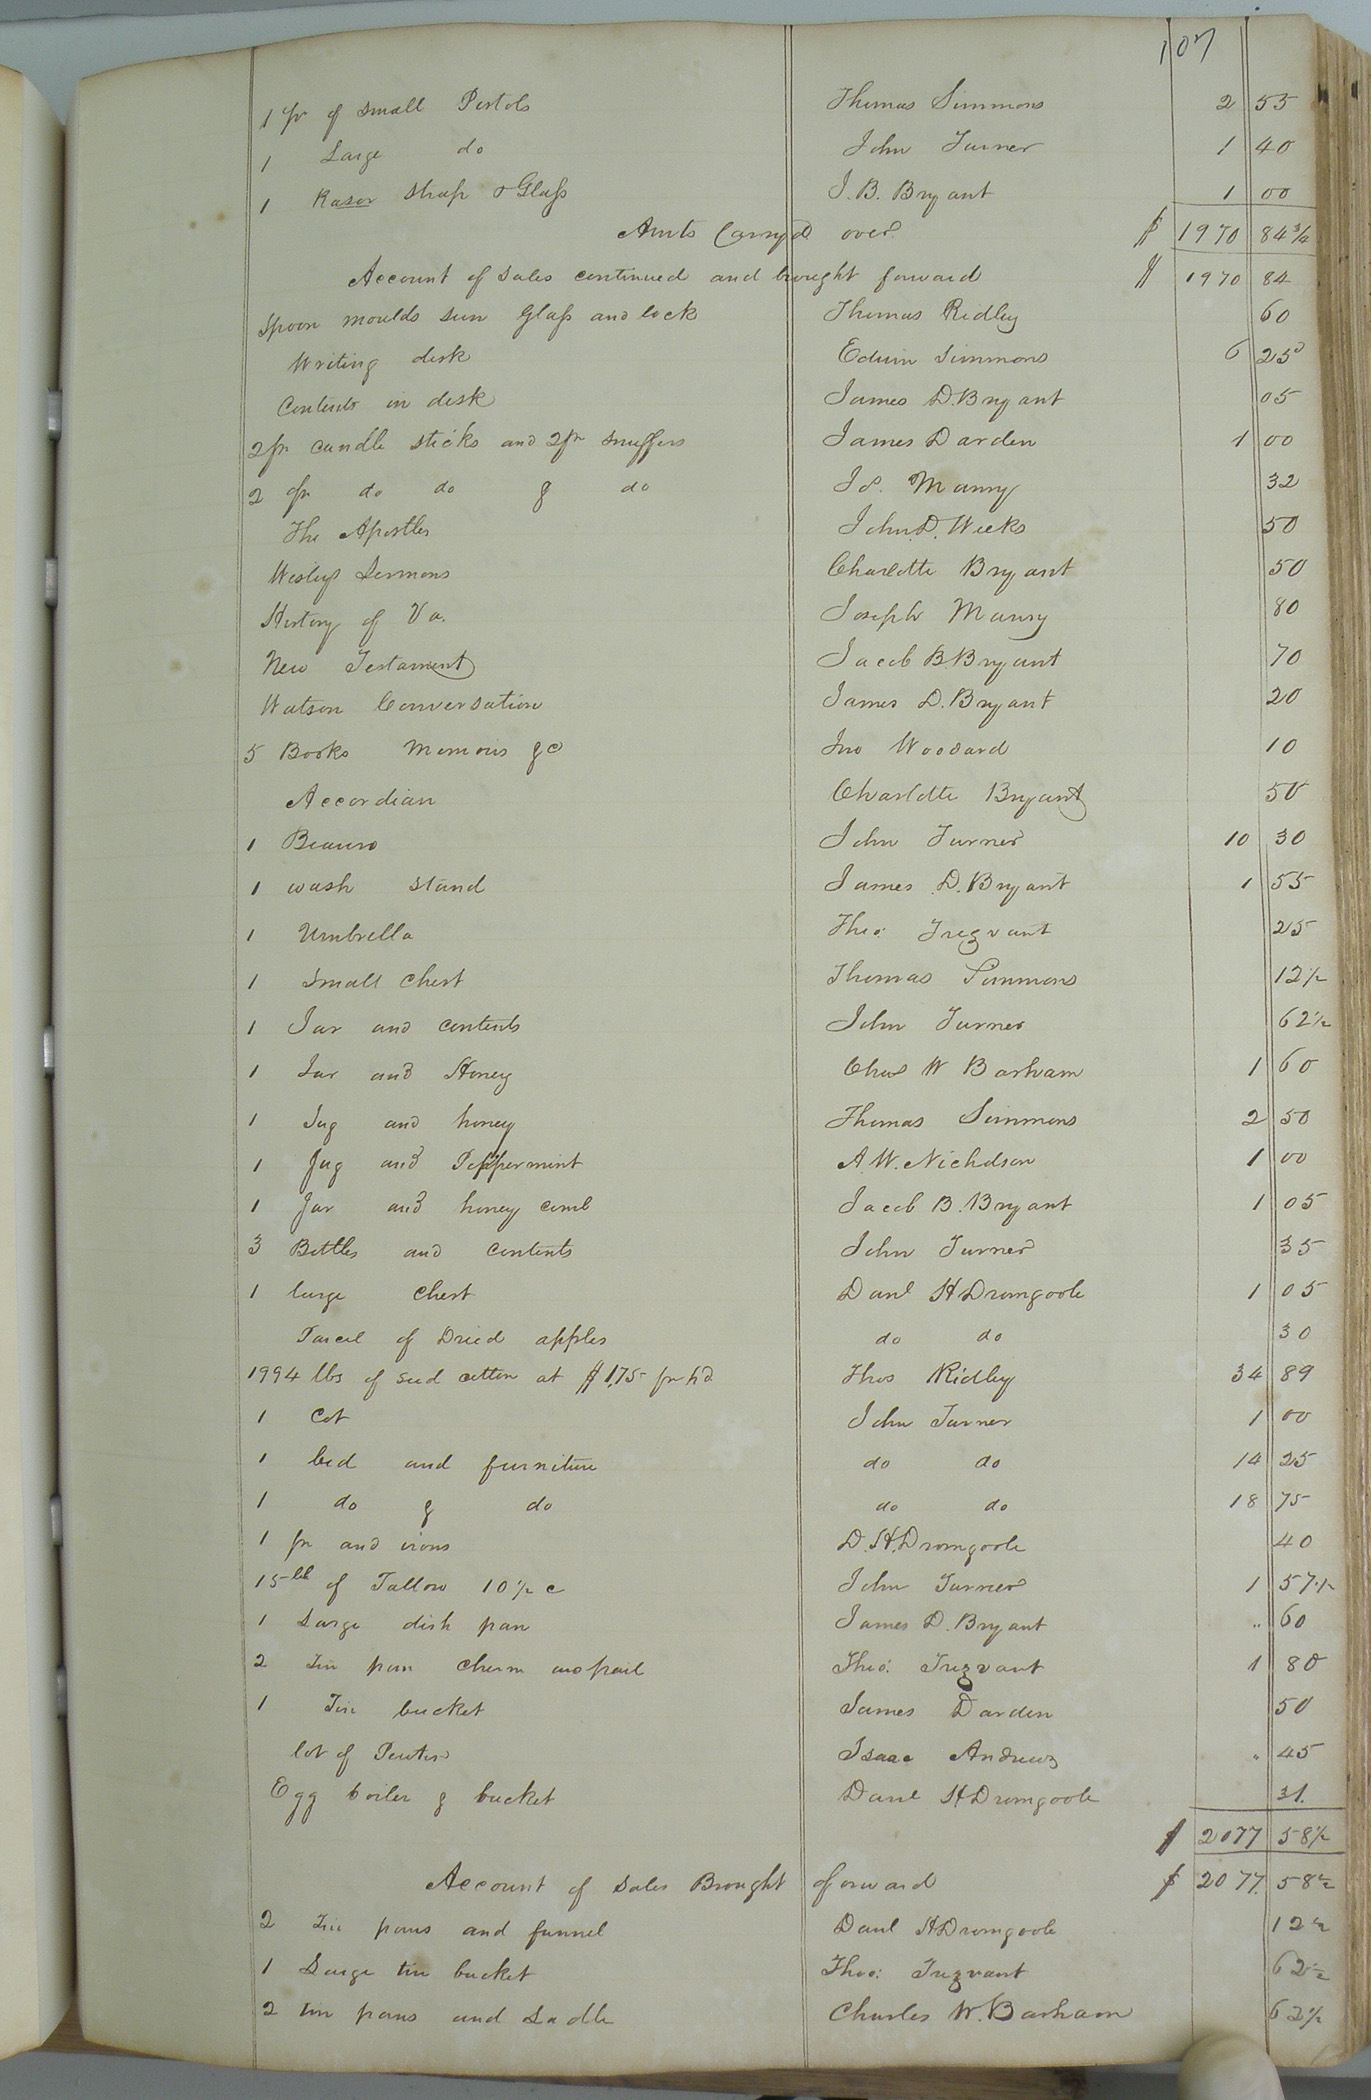 107
1 pr of small Pistols Thomas Simmons 2 55
1 Large do John Turner 1 40
1 Rasor strap & Glass J. B. Bryant 1 00
Amts Carryd over $ 1970 84 3/4
Account of sales continued and brought forward $ 1970 84
Spoon moulds sun Glass and lock Thomas Ridley 60
Writing desk Edwin Simmons 6 25
Contents in desk James D. Bryant 05
2 pr candle sticks and 2 pr snuffers James Darden 1 00
2 pr do do & do Manry 32
The Apostles John D. Weeks 50
Wesleys Sermons Charlotte Bryant 50
History of Va. Joseph Manry 80
New Testament Jacob B. Bryant 70
Watson Conversation James D. Bryant 20
5 Books Memoirs &c Jno Woodard 10
Accordian Charlotte Bryant 50
1 Beauro John Turner 10 30
1 wash stand James D. Bryant 1 55
1 Umbrella Theo: Trezvant 25
1 Small Chest Thomas Simmons 12 1/2
1 Jar and contents John Turner 62 1/2
1 Jar and Honey Chas W Barham 1 60
1 Jug and honey Thomas Simmons 2 50
1 Jug and Peppermint A. W. Nicholson 1 00
1 Jar and honey comb Jacob B. Bryant 1 05
3 Bottles and contents John Turner 35
1 large Chest Danl H Dromgoole 1 05
Parcel of Dried apples do do 30
1994 lbs of seed cotton at $1.75 pr hd Thos Ridley 34 89
1 Cot John Turner 1 00
1 bed and furniture do do 14 25
1 do & do do do 18 75
1 pr and irons D. H. Dromgoole 40
15 lb of Tallow 10 1/2 c John Turner 1 57 1/2
1 Large dish pan James D. Bryant " 60
2 Tin pan churn and pail Theo: Trezvant 1 80
1 Tin bucket James Darden 50
lot of Pewter Isaac Andrews " 45
Egg boiler & bucket Danl H Dromgoole 31
$ 2077 58 1/2
Account of Sales Brought forward $ 2077. 58 1/2
2 Tin pans and funnel Danl H Dromgoole 12 1/2
1 Large tin bucket Theo: Trezvant 62 1/2
2 tin pans and Ladle Charles W. Barham 62 1/2